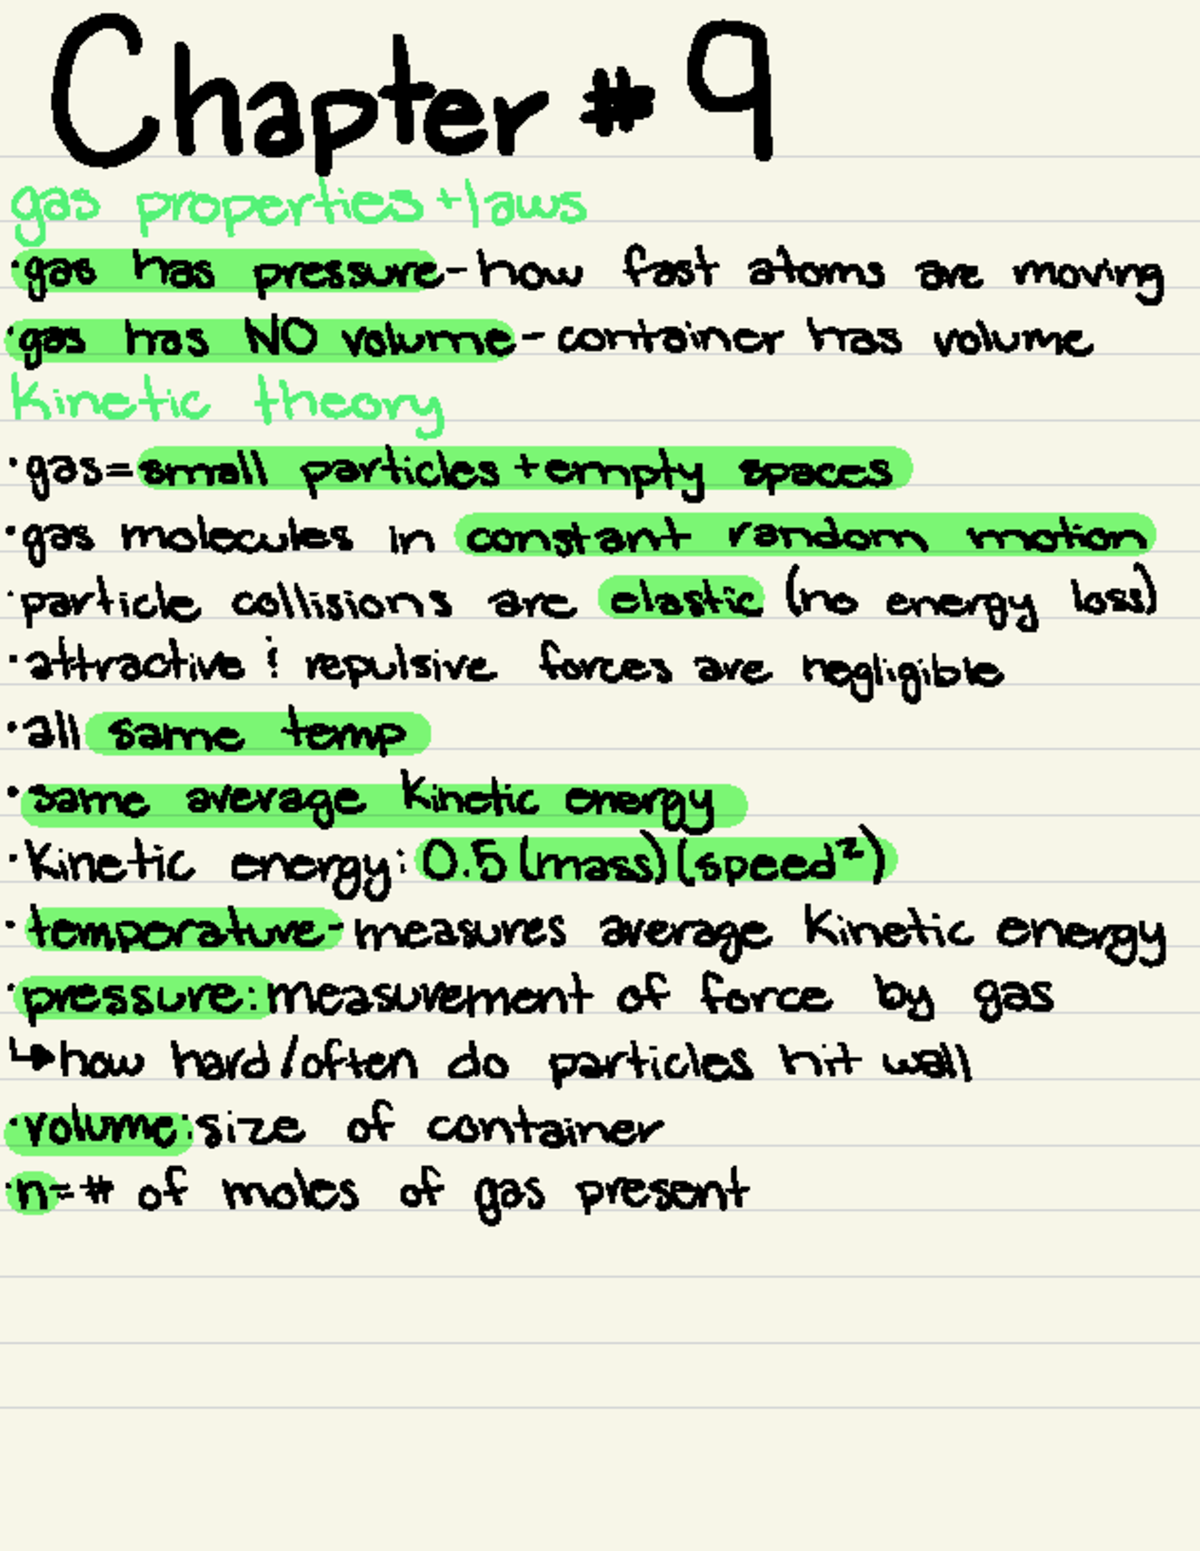 Chapter # 9
gas properties + laws
·gas has pressure - how fast atoms are moving
·gas has NO volume - container has volume
Kinetic theory
·gas = small particles + empty spaces
·gas molecules in constant random motion
·particle collisions are elastic (no energy loss)
·attractive & repulsive forces are negligible
·all same temp
·same average Kinetic energy
·Kinetic energy: 0.5 (mass) (speed²)
·temperature - measures average Kinetic energy
·pressure: measurement of force by gas
↳ how hard/often do particles hit wall
·volume: size of container
·n = # of moles of gas present